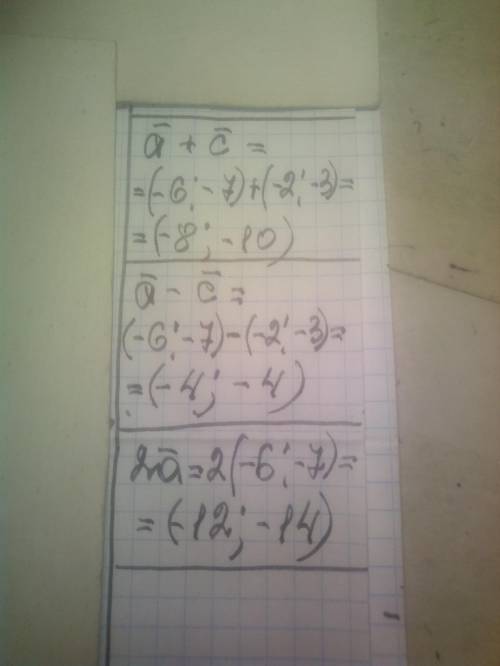 ā + c̄ =
=(-6;-7)+(-2;-3)=
=(-8;-10)
ā - c̄ =
(-6;-7)-(-2;-3)=
=(-4;-4)
2ā=2(-6;-7)=
=(-12;-14)